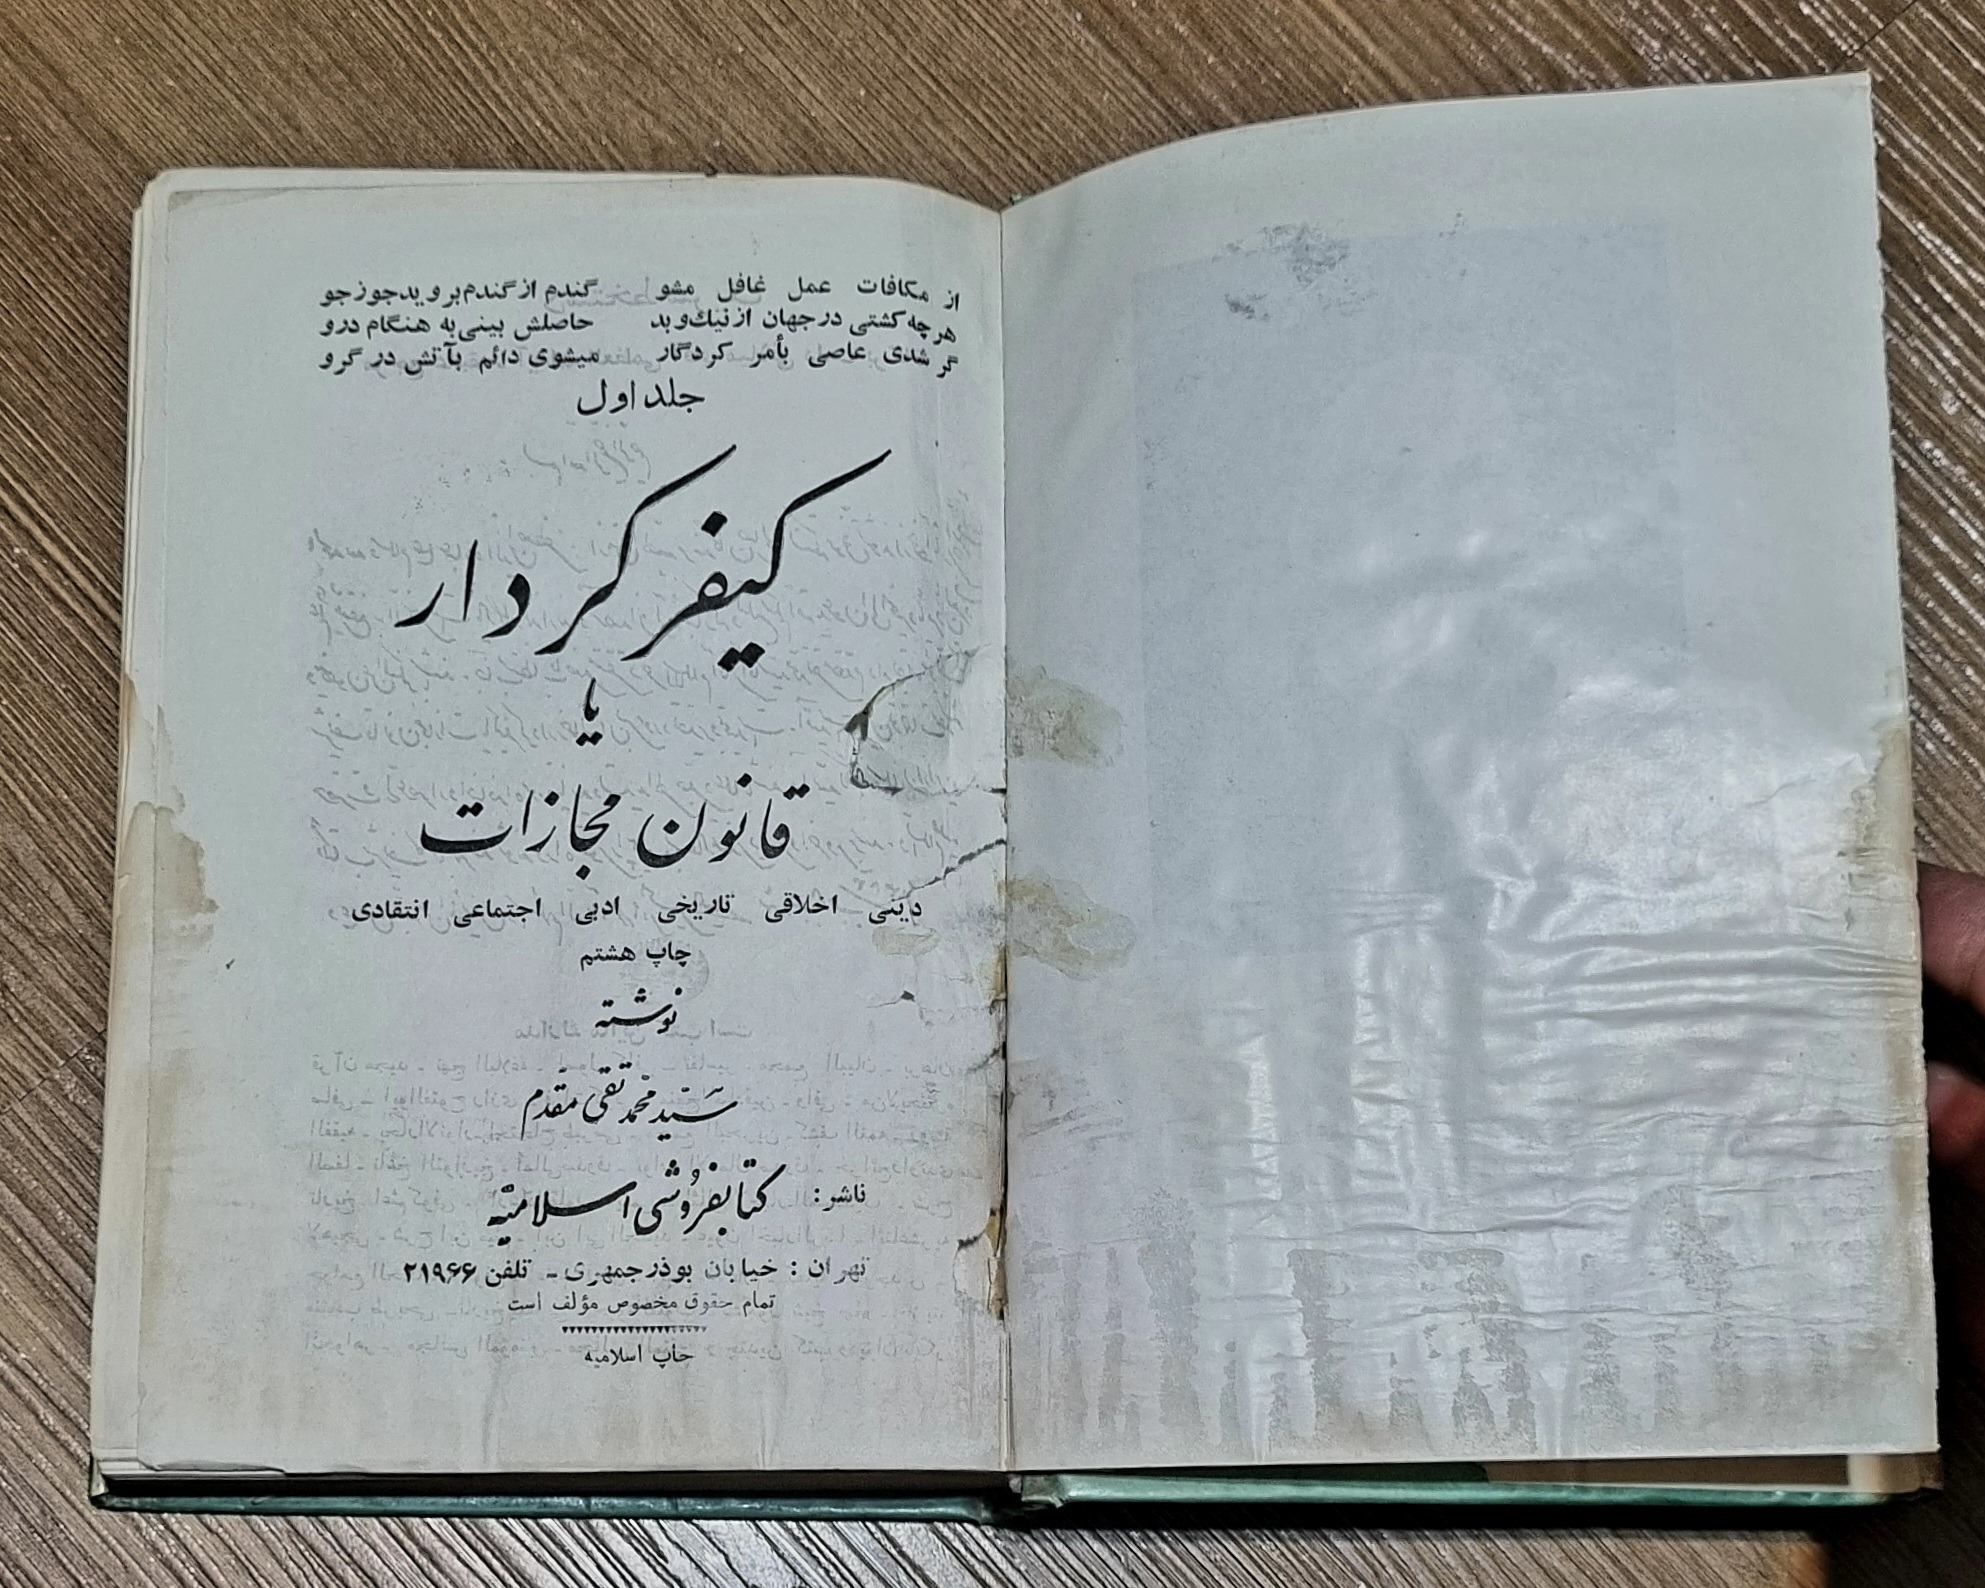 از مکافات عمل غافل مشو گندم از گندم بروید جو ز جو
هر چه کشتی در جهان از نیك و بد حاصلش بینی به هنگام درو
گر شدی عاصی بأمر کردگار میشوی دائم بآتش در گرو
جلد اول
کیفر کردار
یا
قانون مجازات
دینی اخلاقی تاریخی ادبی اجتماعی انتقادی
چاپ هشتم
نوشته
سید محمد تقی مقدم
ناشر: کتابفروشی اسلامیه
تهران : خیابان بوذرجمهری ـ تلفن ۲۱۹۶۶
تمام حقوق مخصوص مؤلف است
چاپ اسلامیه